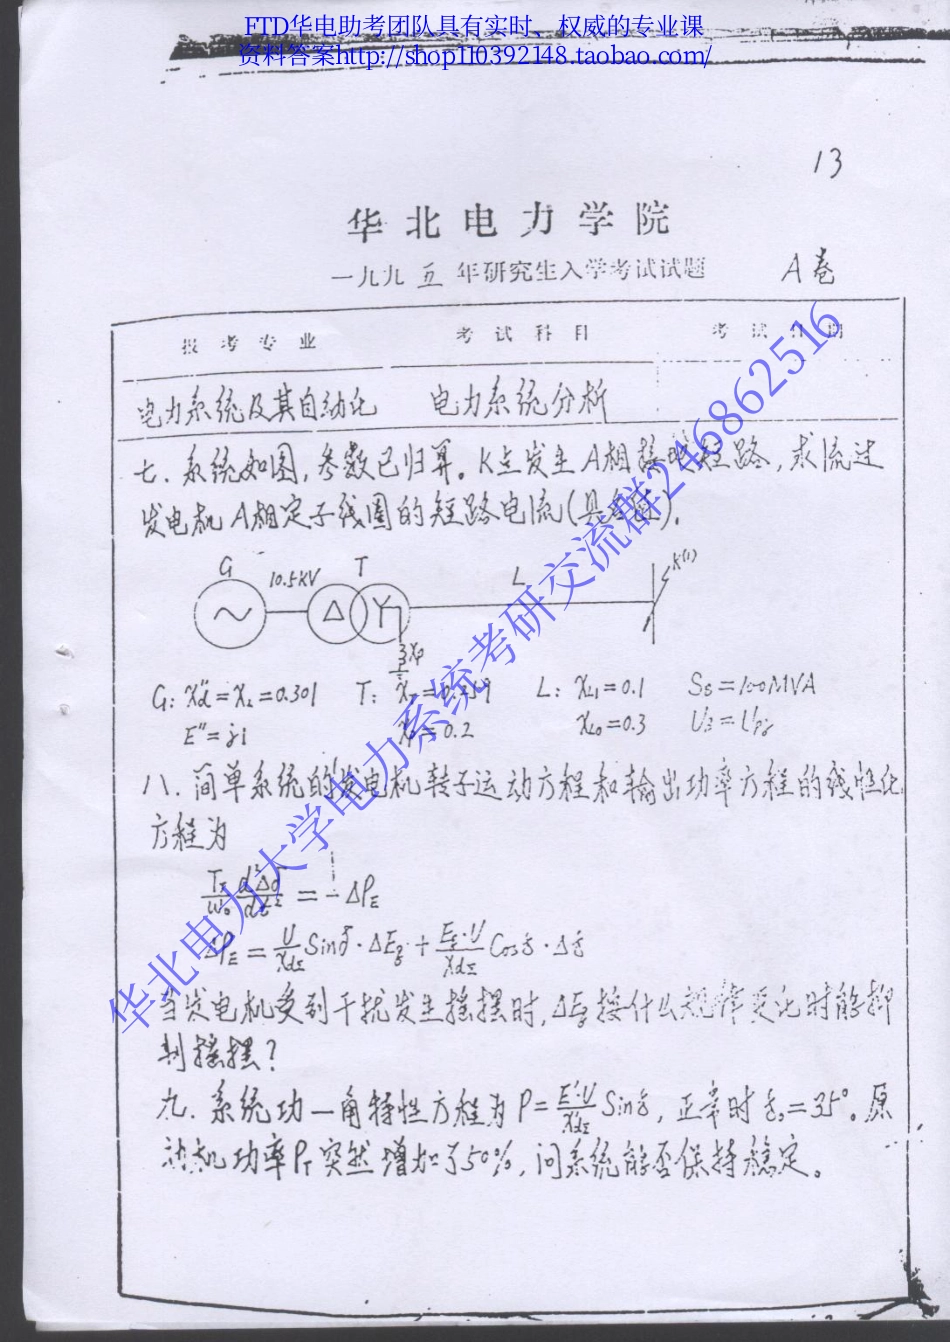 FTD华电助考团队具有实时、权威的专业课
资料答案http://shop110392148.taobao.com/
13
华北电力学院
一九九五年研究生入学考试试题 A卷
报考专业 考试科目 考试日期
电力系统及其自动化 电力系统分析
七.系统如图,参数已归算。K点发生A相接地短路,求流过
发电机A相定子线圈的短路电流(具名值)。
G 10.5KV T L K(1)
Δ Y
3Xp
G: Xd″=X₂=0.301 T: L: XL1=0.1 SB=100MVA
E″=j1 =0.2 XL0=0.3 UB=Upj
八.简单系统的发电机转子运动方程和输出功率方程的线性化
方程为
TJ/ω₀ d²Δδ/dt² = -ΔPE
ΔPE = U/XdΣ Sinδ·ΔEq + Eq·U/XdΣ Cosδ·Δδ
当发电机受到干扰发生摇摆时,ΔEq按什么规律变化时能抑
制摇摆?
九.系统功—角特性方程为P=E′·U/X′dΣ Sinδ,正常时δ₀=35°。原
动机功率PT突然增加了50%,问系统能否保持稳定。
华北电力大学电力系统考研交流群246862516